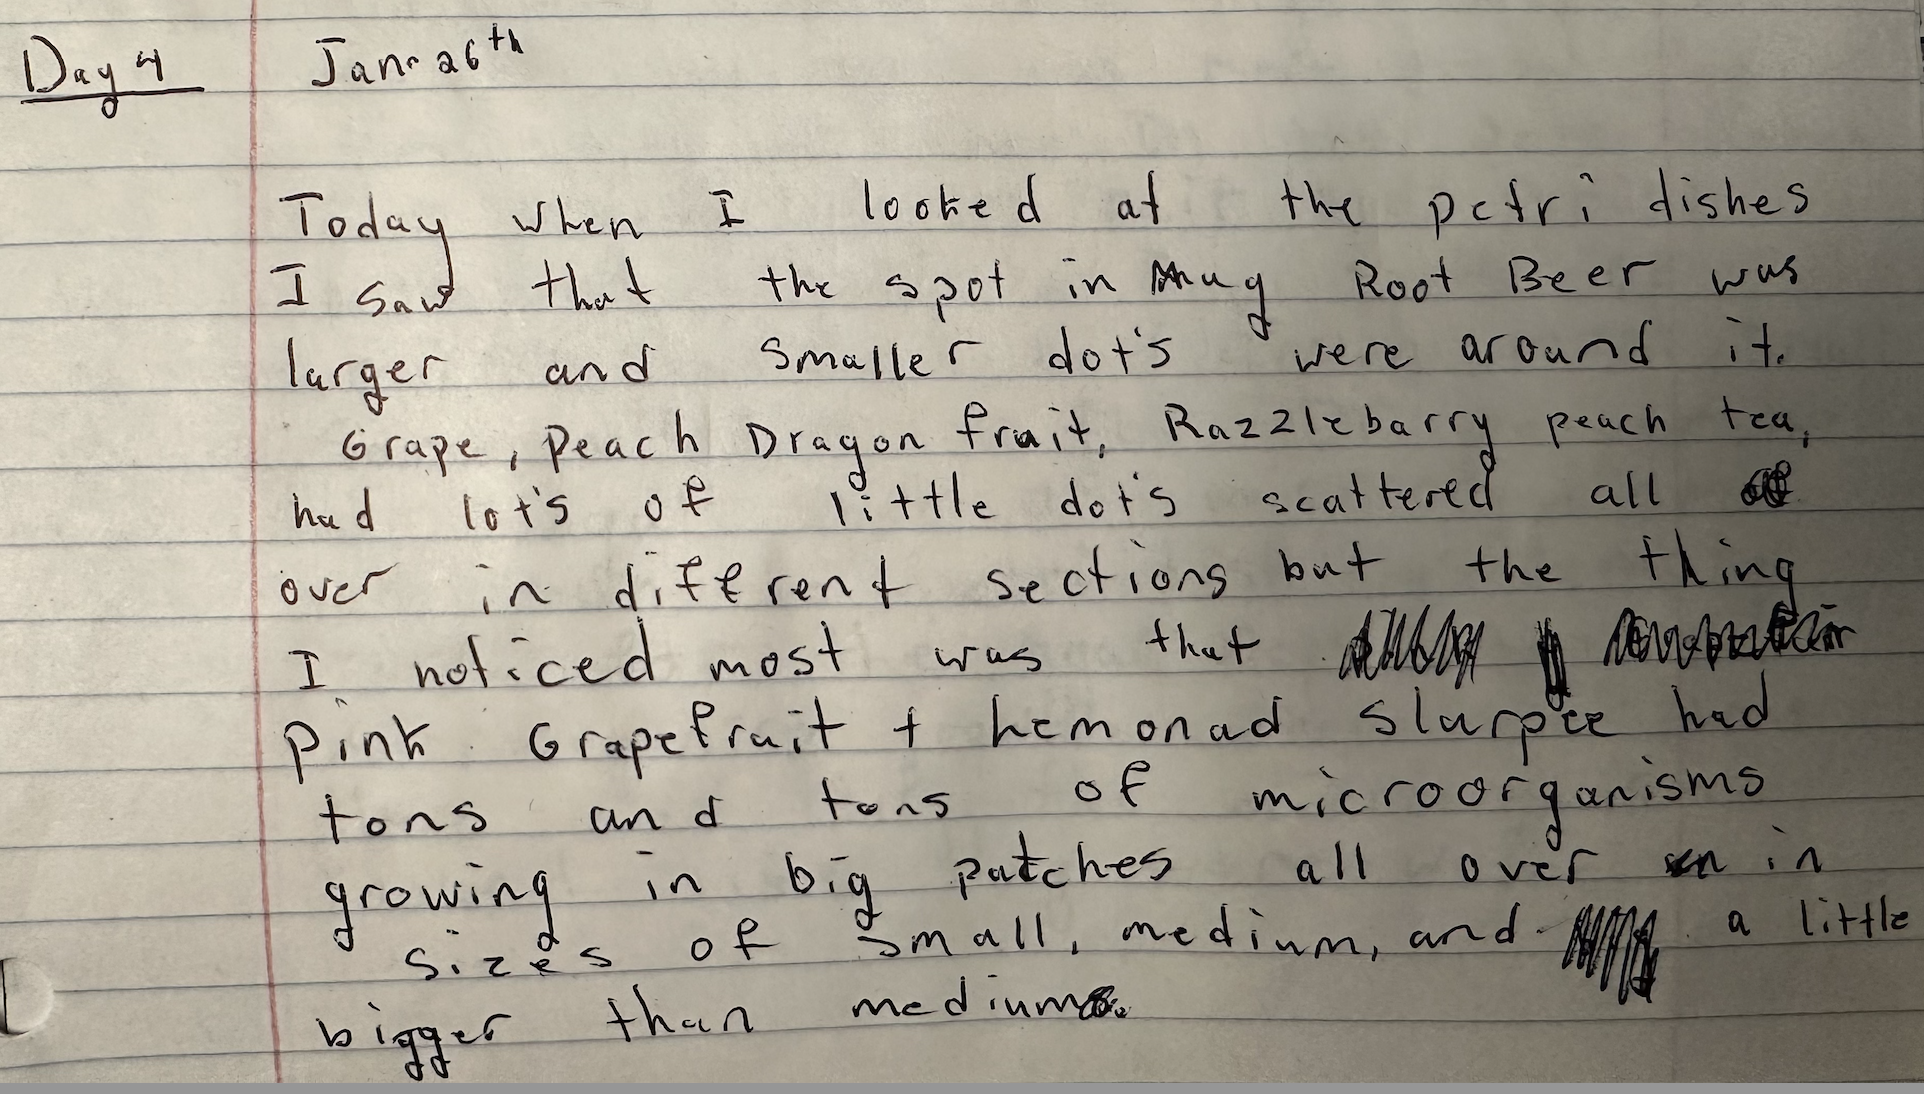 Day 4 Jan. 26th
Today when I looked at the petri dishes
I saw that the spot in Mug Root Beer was
larger and smaller dot's were around it.
Grape, Peach Dragon fruit, Razzlebarry peach tea,
had lot's of little dot's scattered all
over in different sections but the thing
I noticed most was that
Pink Grapefruit + Lemonad Slurpee had
tons and tons of microorganisms
growing in big patches all over in
sizes of small, medium, and a little
bigger than medium.